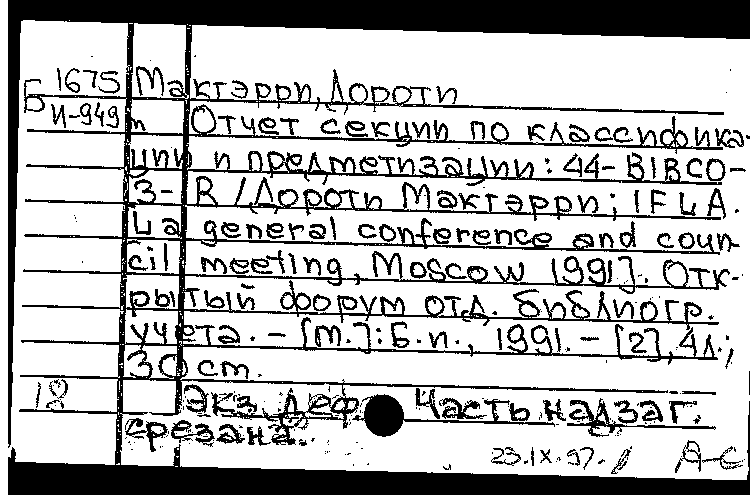 Б 1675 Мактэрри, Дороти
И-949 m Отчет секции по классифика-
ции и предметизации: 44-BIBCO-
3- R / Дороти Мактэрри; IFLA.
La general conference and coun-
cil meeting, Moscow 1991]. Отк-
рытый форум отд. библиогр.
учета. - [m.]: Б.и., 1991. - [2], 4л.;
30 cm.
18 Экз. деф. Часть надзаг.
срезана.
23.IX.97. А-С